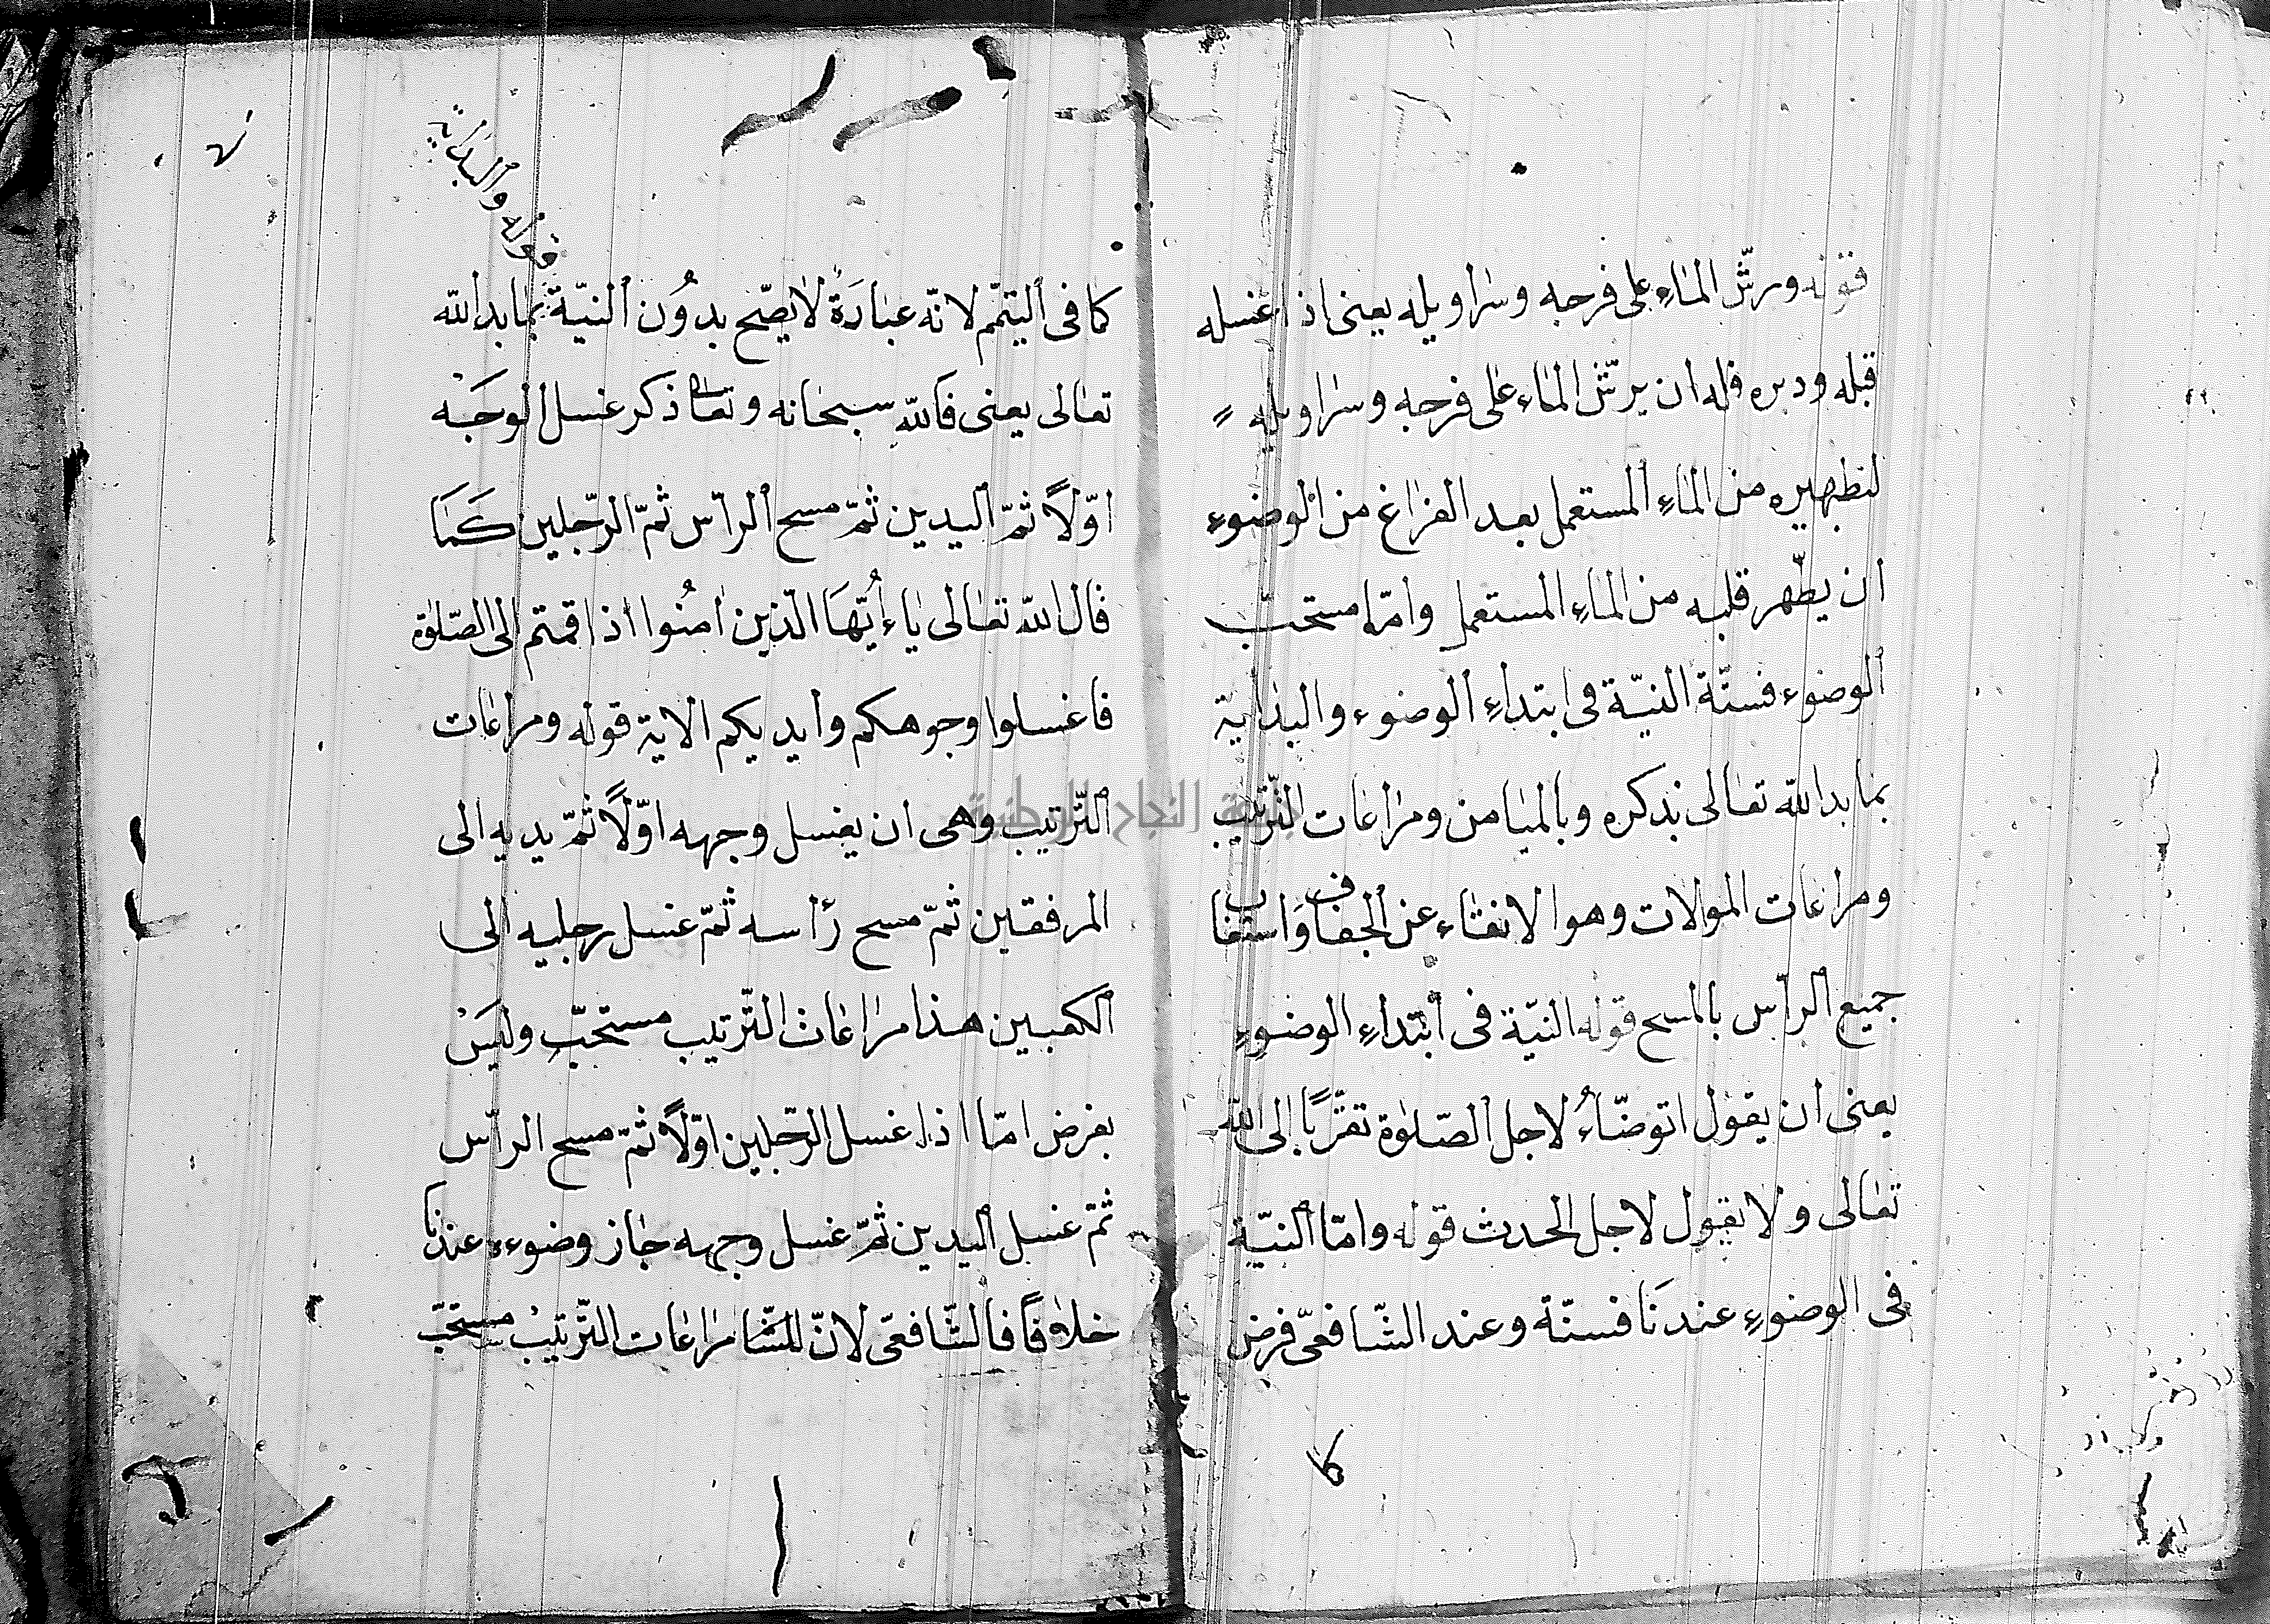 قوله ورشّ الماءِ على فرجه وسراويله يعنى اذا غسله
قبله ودبره فله ان يرشّ الماء على فرجه وسراويله
لتطهيره من الماءِ المستعمل بعد الفراغ من الوضوءِ
ان يطّهر قلبه من الماءِ المستعمل وامّا مستحبّ
الوضوء فستّة النيّة فى ابتداءِ الوضوء والبداية
بما بدا الله تعالى بذكره وبالميامن ومراعات التّرتيب
ومراعات الموالات وهو الانقاء عن الجفاف واستعاب
جميع الرأس بالمسح قوله النيّة فى ابتداءِ الوضوءِ
يعنى ان يقول اتوضّاءُ لاجل الصّلوة تقرّبًا إلى الله
تعالى ولا يقول لاجل الحدث قوله وامّا النيّة
فى الوضوءِ عندنَا فسنّة وعند الشّافعىّ فرض
كما
قوله والبداية
كما فى التيمّم لانّه عبادَةٌ لا يصّح بدوُن النيّة بما بدا الله
تعالى يعنى فَالله سبحانه وتعا ذكر غسل الوجَهْ
اوّلاً ثمّ اليدين ثمّ مسح الرأس ثمّ الرّجلين كَمَا
قال الله تعالى ياءأيّهَا الّذين امنُوا اذا قمتم الى الصّلوة
فاغسلوا وجوهكم وايديكم الاية قوله ومراعات
التّرتيب وهى ان يغسل وجهه اوّلاً ثمّ يديه الى
المرفقين ثمّ مسح رأسه ثمّ غسل رجليه الى
الكعبين هذا مراعات التّرتيب مستحبّ وليَسْ
بفرض امّا اذا غسل الرّجلين اوّلاً ثمّ مسح الرأس
ثمّ غسل اليدين ثمّ غسل وجهه جاز وضوءه عندنا
خلافًا فالشّافعىّ لانّ للشّا مراعات التّرتيب مستحبّ
جامعة النجاح الوطنية